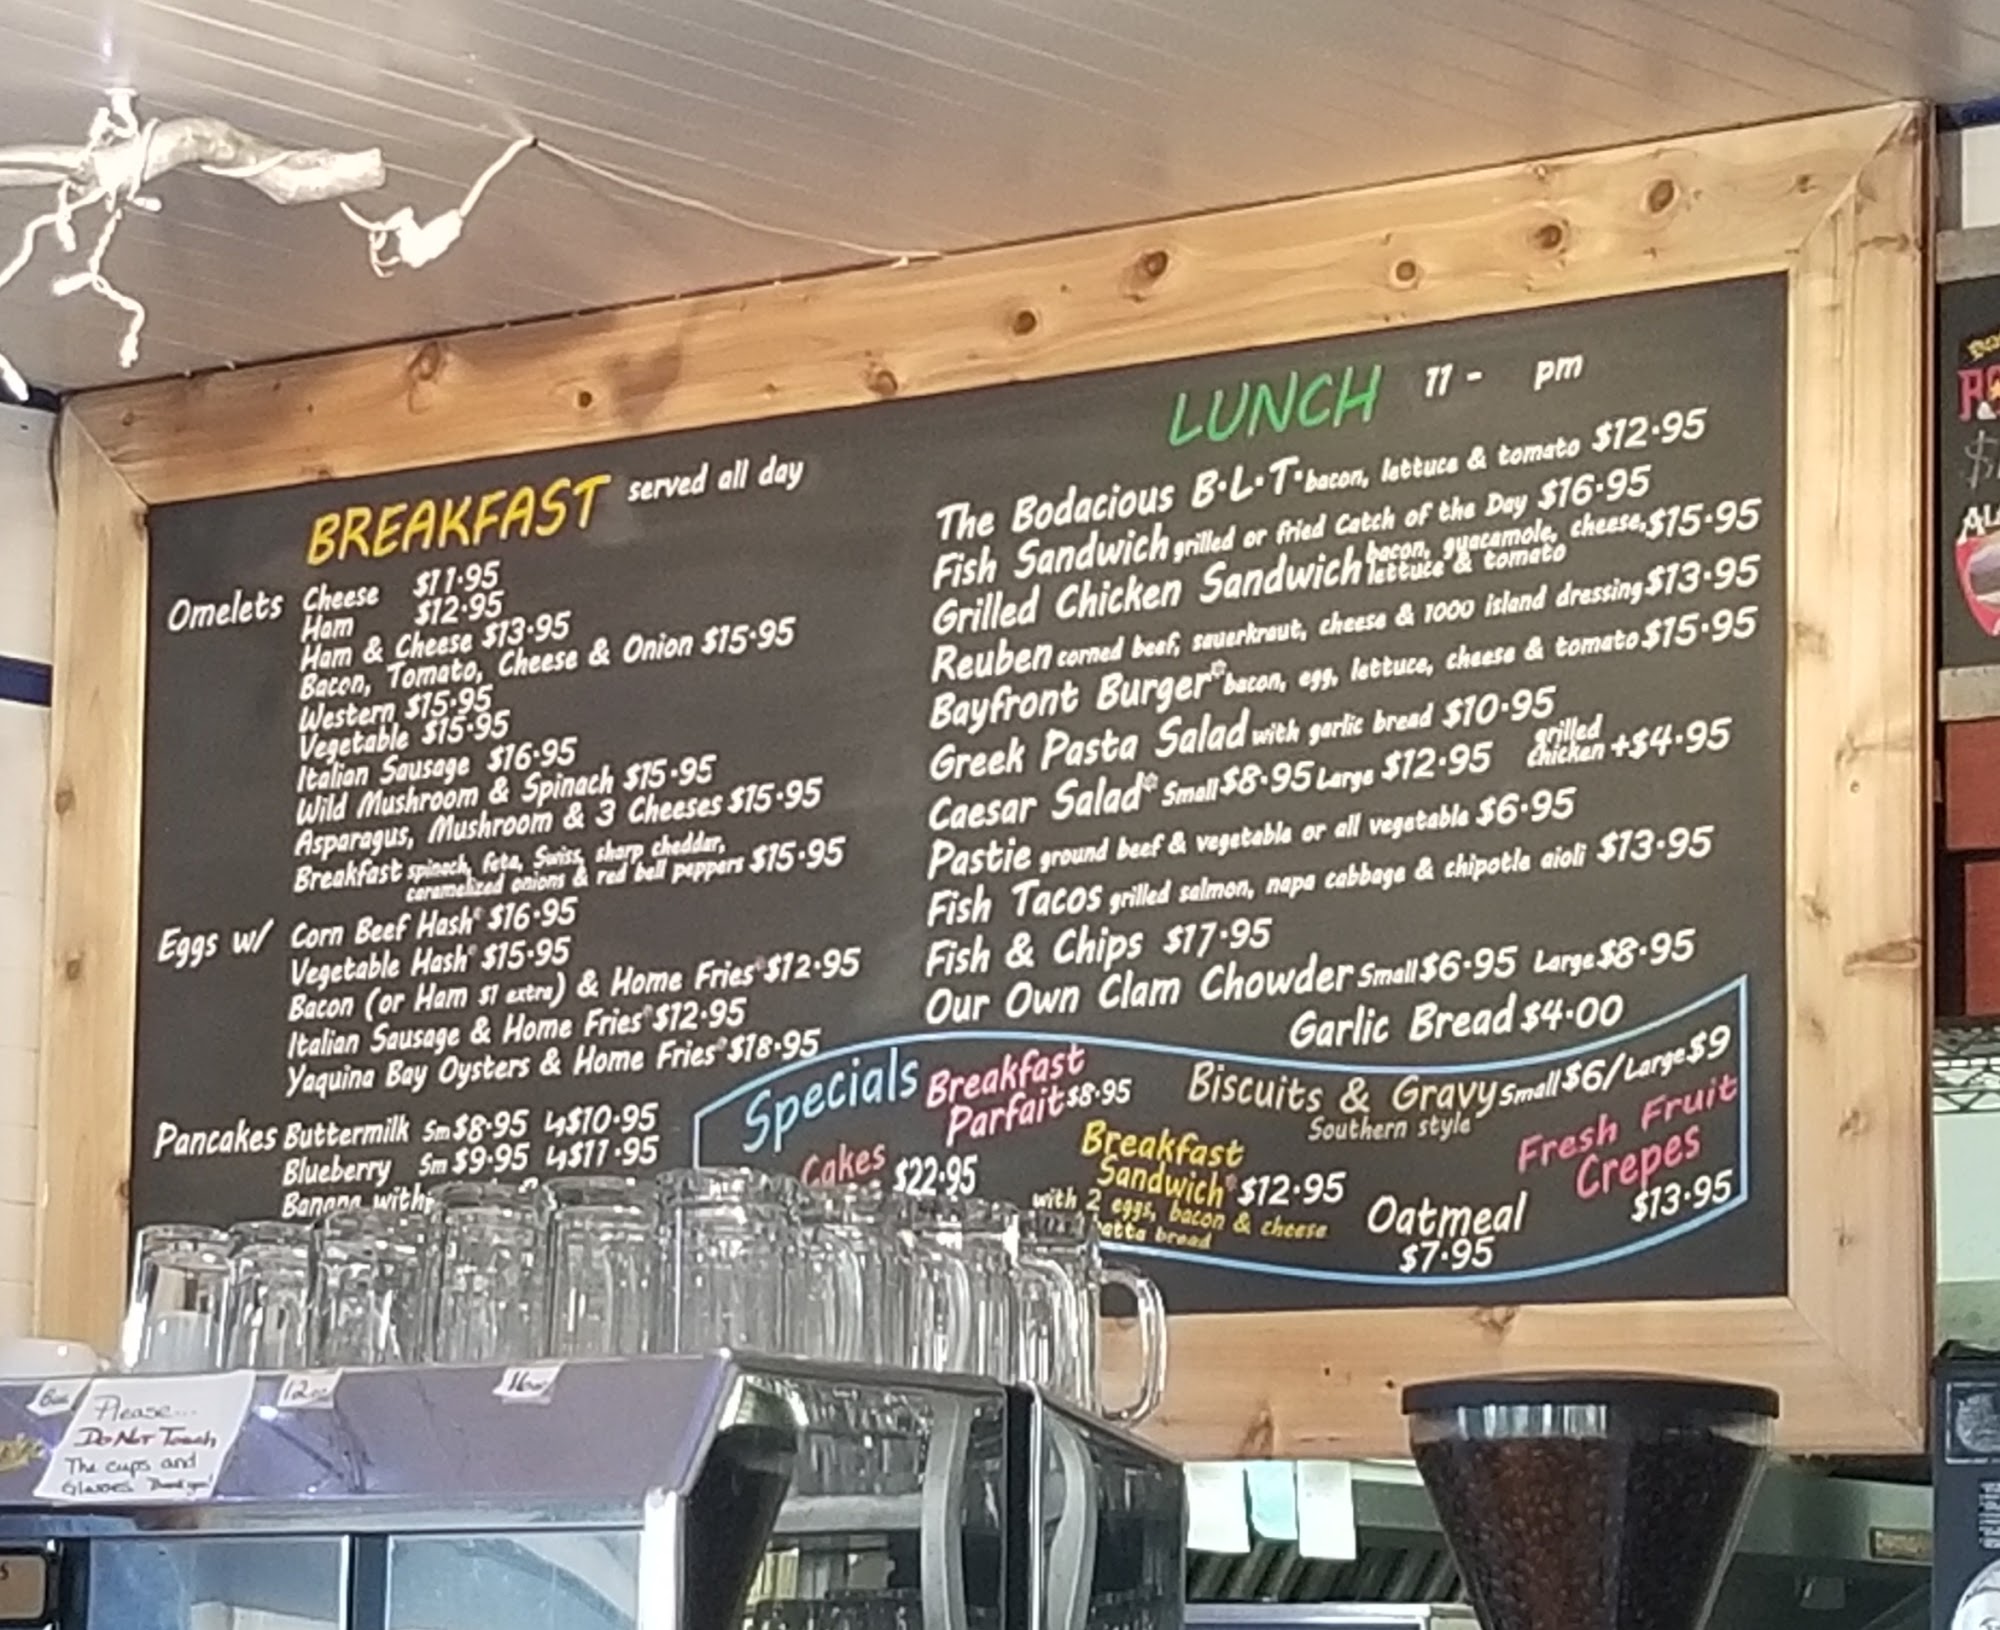 BREAKFAST served all day
Omelets Cheese $11.95
Ham $12.95
Ham & Cheese $13.95
Bacon, Tomato, Cheese & Onion $15.95
Western $15.95
Vegetable $15.95
Italian Sausage $16.95
Wild Mushroom & Spinach $15.95
Asparagus, Mushroom & 3 Cheeses $15.95
Breakfast spinach, feta, Swiss, sharp cheddar,
caramelized onions & red bell peppers $15.95
Eggs w/ Corn Beef Hash* $16.95
Vegetable Hash* $15.95
Bacon (or Ham $1 extra) & Home Fries* $12.95
Italian Sausage & Home Fries* $12.95
Yaquina Bay Oysters & Home Fries* $18.95
Pancakes Buttermilk Sm $8.95 Lg $10.95
Blueberry Sm $9.95 Lg $11.95
Banana with
LUNCH 11 - pm
The Bodacious B.L.T. bacon, lettuce & tomato $12.95
Fish Sandwich grilled or fried Catch of the Day $16.95
Grilled Chicken Sandwich bacon, guacamole, cheese, $15.95
lettuce & tomato
Reuben corned beef, sauerkraut, cheese & 1000 island dressing $13.95
Bayfront Burger* bacon, egg, lettuce, cheese & tomato $15.95
Greek Pasta Salad with garlic bread $10.95
Caesar Salad* Small $8.95 Large $12.95 grilled chicken +$4.95
Pastie ground beef & vegetable or all vegetable $6.95
Fish Tacos grilled salmon, napa cabbage & chipotle aioli $13.95
Fish & Chips $17.95
Our Own Clam Chowder Small $6.95 Large $8.95
Garlic Bread $4.00
Specials
Breakfast
Parfait $8.95
Cakes $22.95
Breakfast
Sandwich* $12.95
with 2 eggs, bacon & cheese
bread
Biscuits & Gravy Small $6/Large $9
Southern style
Oatmeal
$7.95
Fresh Fruit
Crepes
$13.95
12oz
16oz
Please...
Do Not Touch
The cups and
Glasses Thank you!